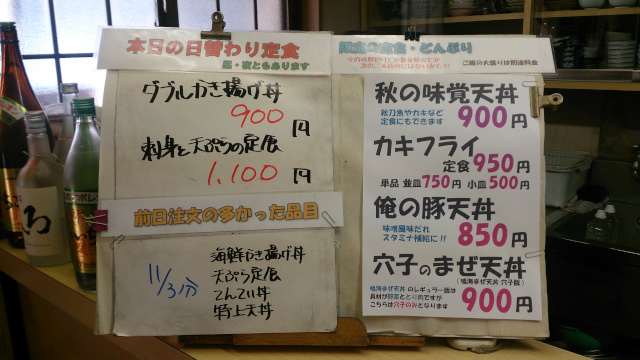 本日の日替わり定食
昼・夜ともあります
ダブルかき揚げ丼
900円
刺身と天ぷらの定食
1,100円
前日注文の多かった品目
11/3分
海鮮かき揚げ丼
天ぷら定食
てんてい丼
特上天丼
限定の定食・どんぶり
ご飯の大盛りは別途料金
秋の味覚天丼
秋刀魚やカキなど
定食にもできます
900円
カキフライ
定食950円
単品 並皿750円 小皿500円
俺の豚天丼
味噌風味だれ
スタミナ補給に!!
850円
穴子のまぜ天丼
(鳴海まぜ天丼 穴子飯)
鳴海まぜ天丼 のレギュラー版は
具材が野菜ととり肉ですが
こちらは穴子のみとなります
900円